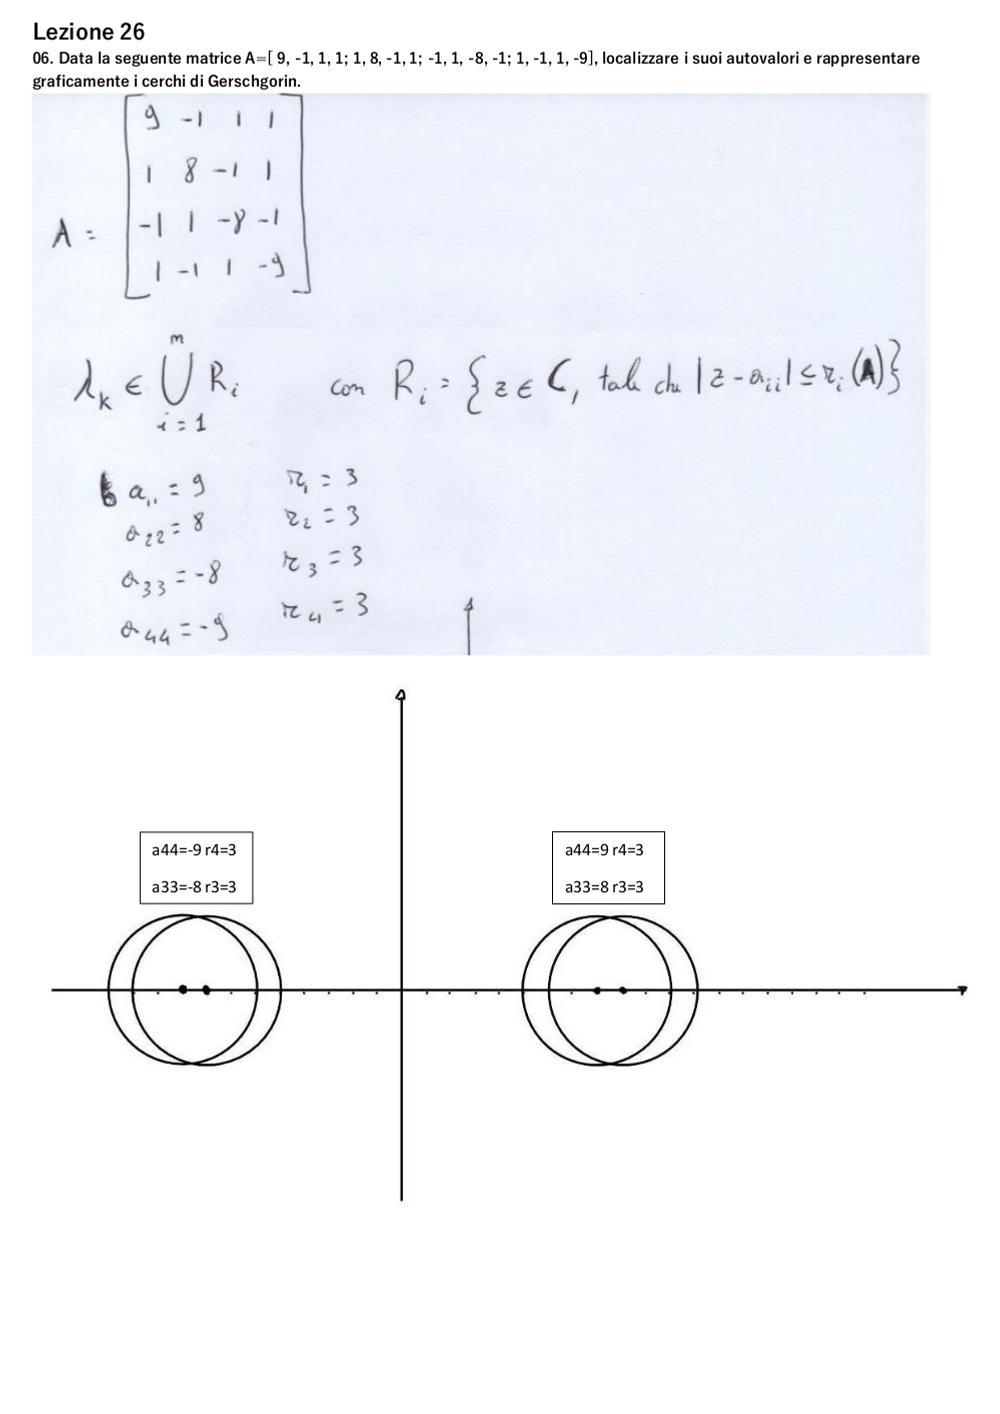 Lezione 26
06. Data la seguente matrice A=[ 9, -1, 1, 1; 1, 8, -1, 1; -1, 1, -8, -1; 1, -1, 1, -9], localizzare i suoi autovalori e rappresentare
graficamente i cerchi di Gerschgorin.
9 -1 1 1
1 8 -1 1
A = -1 1 -8 -1
1 -1 1 -9
λk ∈ ⋃ i=1 m Ri con Ri = {z ∈ C, tale che |z - aii| ≤ ri (A)}
a11 = 9 r1 = 3
a22 = 8 r2 = 3
a33 = -8 r3 = 3
a44 = -9 r4 = 3
a44=-9 r4=3
a33=-8 r3=3
a44=9 r4=3
a33=8 r3=3